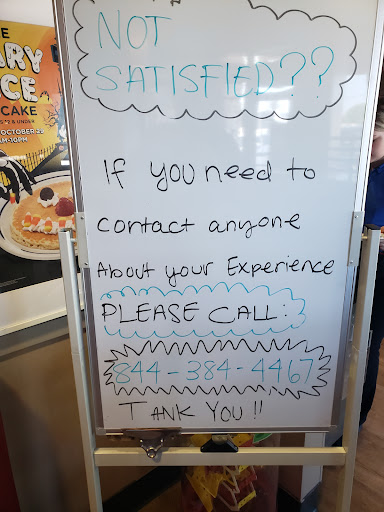 NOT
SATISFIED??
If you need to
contact anyone
About your Experience
PLEASE CALL:
844-384-4467
THANK YOU!!
CAKE
OCTOBER